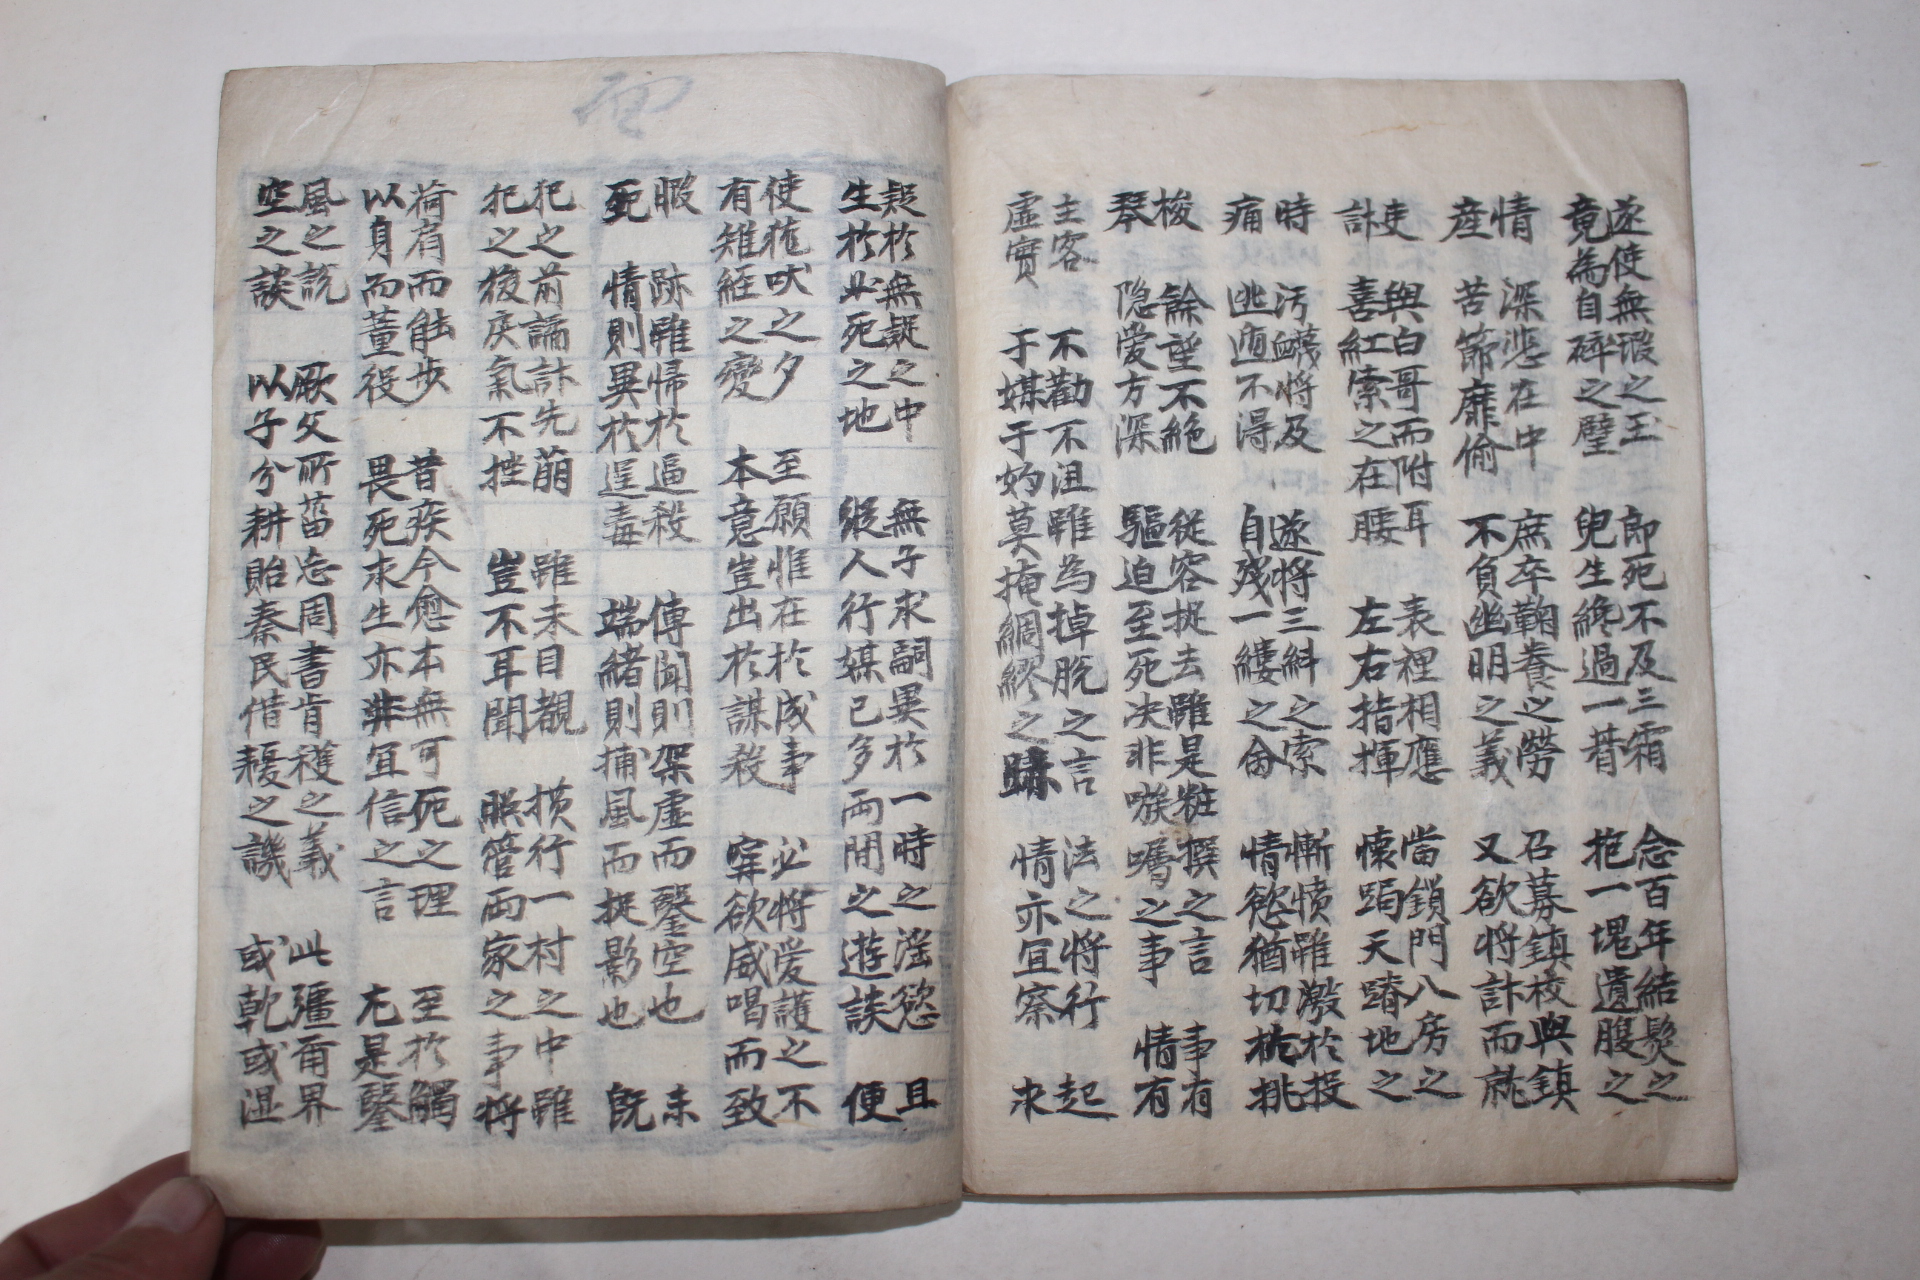 遂使無瑕之玉 即死不及三霜 念百年結髮之
竟為自碎之璧 兒生纔過一朞 抱一塊遺腹之
情 深悲在中 庶卒鞠養之勞 召募鎮校與鎮
産 苦節靡偷 不負幽明之義 又欲將計而就
吏 與白哥而附耳 表裡相應 當鎖門八房之
計 喜紅索之在腰 左右指揮 懷跼天蹐地之
時 汚衊將及 遂將三糾之索 慚憤雖激於投
痛 逃遁不得 自殘一縷之命 情慾猶切於挑
梭 餘望不絶 従容捉去雖是粧撰之言 事有
琴 隐愛方深 驅迫至死决非嗾囑之事 情有
主客 不勸不沮雖為掉脫之言 法之將行 起
虛實 于媒于妁莫掩綢繆之跡 情亦宜察 求
疑於無疑之中 無子求嗣異於一時之淫慾 且
生於必死之地 縱人行媒已多两間之遊談 便
使尨吠之夕 至願惟在於成事 必將愛護之不
有雉經之變 本意豈出於謀殺 寧欲威喝而致
暇 跡雖歸於逼殺 傳聞則架虛而鑿空也 未
死 情則異於逞毒 端緒則捕風而捉影也 旣
犯之前譎計先萌 雖未目覩 横行一村之中雖
犯之後戾氣不挫 豈不耳聞 照管两家之事將
荷肩而能步 昔疾今愈本無可死之理 至於觸
以身而董役 畏死求生亦非宜信之言 尤是鑿
風之説 厥父所菑忘周書肯穫之義 此疆爾界
空之談 以子分耕貽秦民借耰之譏 或乾或湿